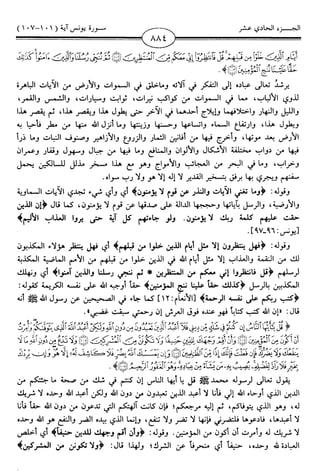 الجزء الحادي عشر
٨٨٤
سورة يونس آية (١٠١-١٠٧)
أَيَّامِ ٱلَّذِينَ خَلَوْا۟ مِن قَبْلِهِمْ قُلْ فَٱنتَظِرُوٓا۟ إِنِّى مَعَكُم مِّنَ ٱلْمُنتَظِرِينَ ثُمَّ نُنَجِّى رُسُلَنَا وَٱلَّذِينَ ءَامَنُوا۟ كَذَٰلِكَ
حَقًّا عَلَيْنَا نُنجِ ٱلْمُؤْمِنِينَ
يرشد تعالى عباده إلى التفكر في آلائه وماخلق في السموات والأرض من الآيات الباهرة
لذوي الألباب، مما في السموات من كواكب نيرات، ثوابت وسيارات، والشمس والقمر،
والليل والنهار واختلافهما وإيلاج أحدهما في الآخر حتى يطول هذا ويقصر هذا، ثم يقصر هذا
ويطول هذا، وارتفاع السماء واتساعها وحسنها وزينتها وما أنزل الله منها من مطر فأحيا به
الأرض بعد موتها، وأخرج فيها من أفانين الثمار والزروع والأزاهير وصنوف النبات وما ذرأ
فيها من دواب مختلفة الأشكال والألوان والمنافع وما فيها من جبال وسهول وقفار وعمران
وخراب، وما في البحر من العجائب والأمواج وهو مع هذا مسخر مذلل للسالكين يحمل
سفنهم ويجري بها برفق بتسخير القدير لا إله إلا هو ولا رب سواه.
وقوله: ﴿وما تغني الآيات والنذر عن قوم لا يؤمنون﴾ أي وأي شيء تجدي الآيات السماوية
والأرضية، والرسل بآياتها وحججها الدالة على صدقها عن قوم لا يؤمنون، كما قال ﴿إن الذين
حقت عليهم كلمة ربك لا يؤمنون. ولو جاءتهم كل آية حتى يروا العذاب الأليم﴾
[يونس: ٩٦-٩٧].
وقوله: ﴿فهل ينتظرون إلا مثل أيام الذين خلوا من قبلهم﴾ أي فهل ينتظر هؤلاء المكذبون
لك من النقمة والعذاب إلا مثل أيام الله في الذين خلوا من قبلهم من الأمم الماضية المكذبة
لرسلهم ﴿قل فانتظروا إني معكم من المنتظرين * ثم ننجي رسلنا والذين آمنوا﴾ أي ونهلك
المكذبين بالرسل ﴿كذلك حقاً علينا ننج المؤمنين﴾ حقاً أوجبه الله على نفسه الكريمة كقوله:
﴿كتب ربكم على نفسه الرحمة﴾ [الأنعام: ١٢] كما جاء في الصحيحين عن رسول الله ﷺ أنه
قال: «إن الله كتب كتاباً فهو عنده فوق العرش إن رحمتي سبقت غضبي».
قُلْ يَٰٓأَيُّهَا ٱلنَّاسُ إِن كُنتُمْ فِى شَكٍّ مِّن دِينِى فَلَآ أَعْبُدُ ٱلَّذِينَ تَعْبُدُونَ مِن دُونِ ٱللَّهِ وَلَٰكِنْ أَعْبُدُ ٱللَّهَ ٱلَّذِى يَتَوَفَّىٰكُمْ وَأُمِرْتُ
أَنْ أَكُونَ مِنَ ٱلْمُؤْمِنِينَ وَأَنْ أَقِمْ وَجْهَكَ لِلدِّينِ حَنِيفًا وَلَا تَكُونَنَّ مِنَ ٱلْمُشْرِكِينَ وَلَا تَدْعُ مِن دُونِ ٱللَّهِ مَا لَا
يَنفَعُكَ وَلَا يَضُرُّكَ فَإِن فَعَلْتَ فَإِنَّكَ إِذًا مِّنَ ٱلظَّٰلِمِينَ وَإِن يَمْسَسْكَ ٱللَّهُ بِضُرٍّ فَلَا كَاشِفَ لَهُۥٓ إِلَّا هُوَ وَإِن يُرِدْكَ بِخَيْرٍ
يقول تعالى لرسوله محمد ﷺ قل يا أيها الناس إن كنتم في شك من صحة ما جئتكم من
الدين الذي أوحاه الله إلي فأنا لا أعبد الذين تعبدون من دون الله ولكن أعبد الله وحده لا شريك
له، وهو الذي يتوفاكم، ثم إليه مرجعكم؛ فإن كانت آلهتكم التي تدعون من دون الله حقاً فأنا
لا أعبدها، فادعوها فلتضرني فإنها لا تضر ولا تنفع، وإنما الذي بيده الضر والنفع هو الله وحده
لا شريك له وأمرت أن أكون من المؤمنين. وقوله: ﴿وأن أقم وجهك للدين حنيفاً﴾ أي أخلص
العبادة لله وحده، حنيفاً أي منحرفاً عن الشرك؛ ولهذا قال: ﴿ولا تكونن من المشركين﴾